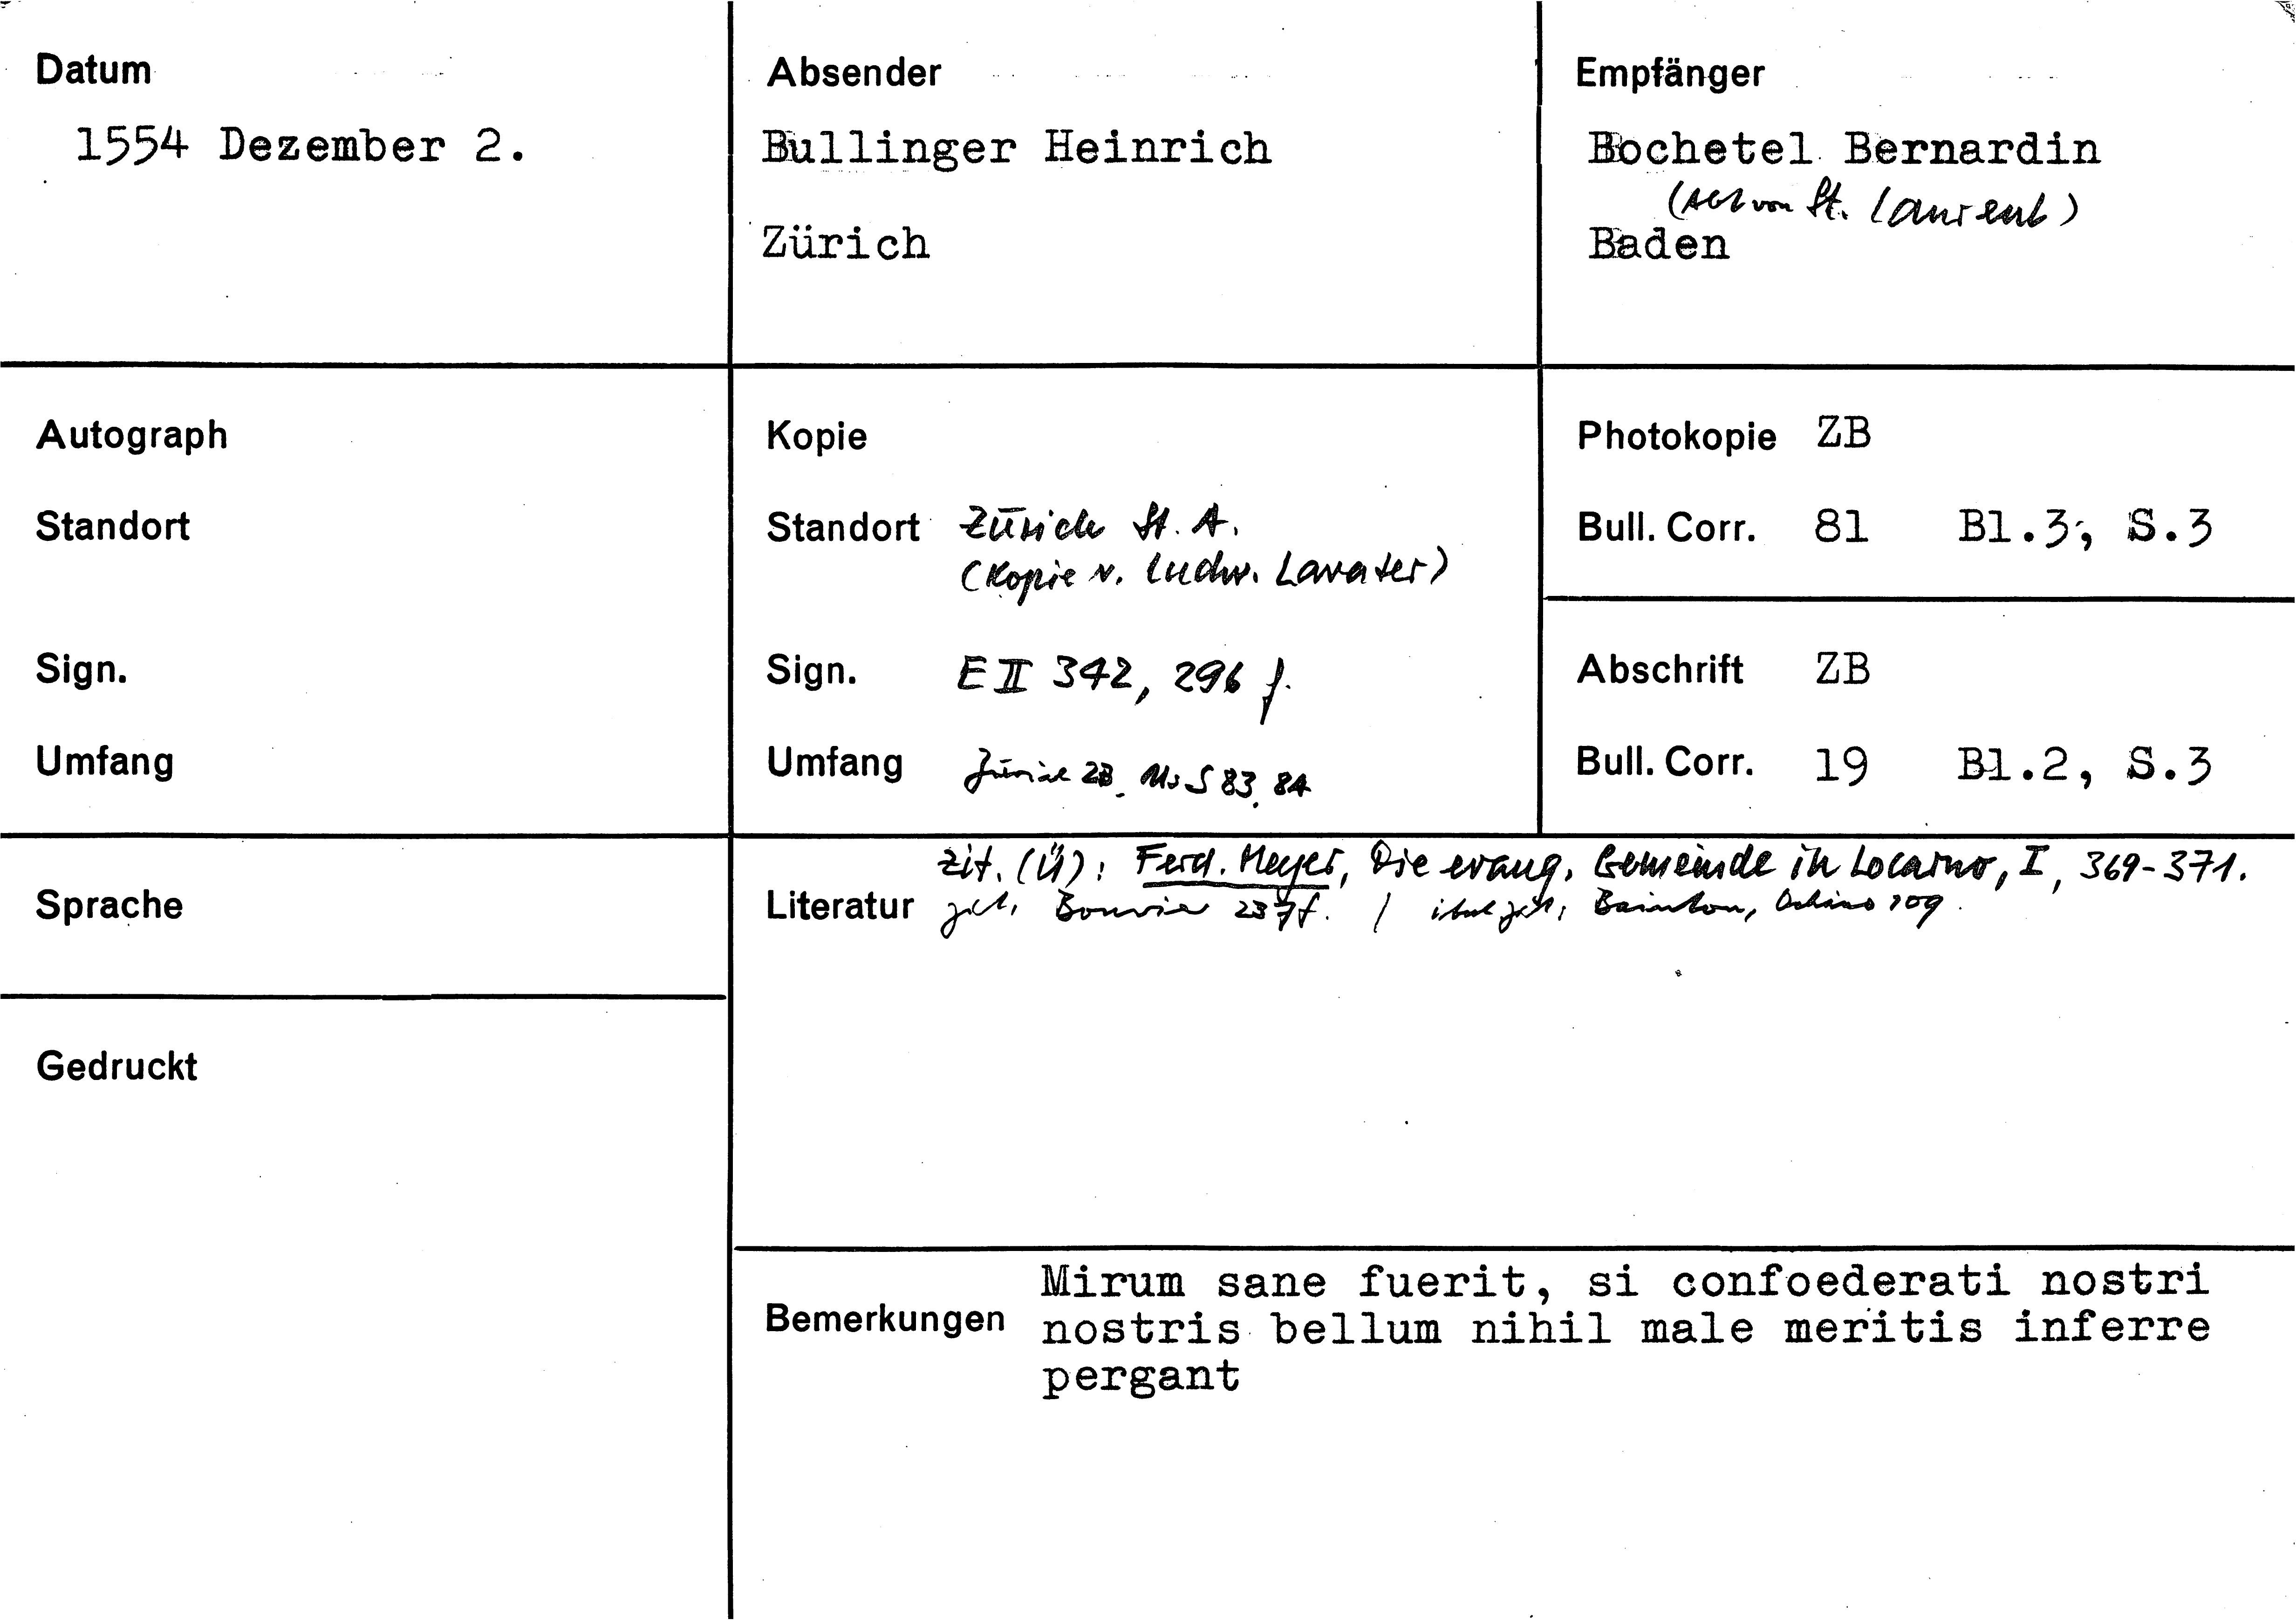 Datum
1554 Dezember 2.
Absender
Bullinger Heinrich
Zürich
Empfänger
Bochetel Bernardin
(Abt von St. Laurent)
Baden
Autograph
Standort
Sign.
Umfang
Kopie
Standort Zürich St. A.
(Kopie v. Ludw. Lavater)
Sign. E II 342, 296 f.
Umfang Zürich ZB Ms S 83, 84
Photokopie ZB
Bull. Corr. 81 Bl.3, S.3
Abschrift ZB
Bull. Corr. 19 Bl.2, S.3
Sprache
Gedruckt
zit. (Ü): Ferd. Meyer, Die evang. Gemeinde in Locarno, I, 369-371.
Literatur zit. Bouvier 237f. / Bainton, Ochino 109.
Bemerkungen
Mirum sane fuerit, si confoederati nostri
nostris bellum nihil male meritis inferre
pergant